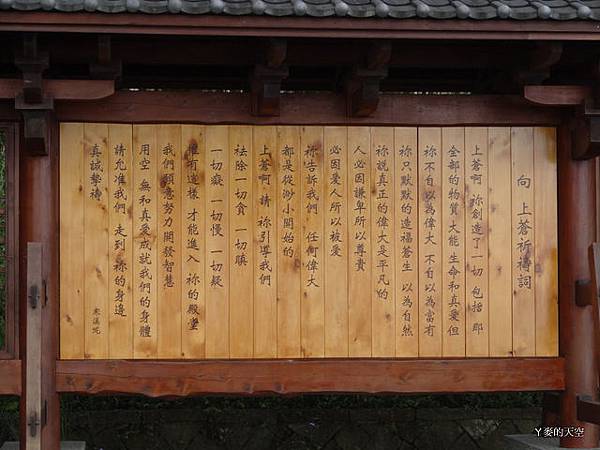 向 上蒼祈禱詞
上蒼啊 祢創造了一切 包括 那
全部的物質大能 生命和真愛 但
祢不自以為偉大 不自以為富有
祢只默默的造福蒼生 以為自然
祢說真正的偉大是平凡的
人必因謙卑所以尊貴
必因愛人所以被愛
祢告訴我們 任何偉大
都是從渺小開始的
上蒼啊 請 祢引導我們
祛除一切貪 一切瞋
一切癡 一切慢 一切疑
惟有這樣 才能進入 祢的殿堂
我們願意努力開發智慧
用空 無和真愛成就我們的身體
請允准我們 走到 祢的身邊
真誠摯禱
宋溪圪
ㄚ麥的天空